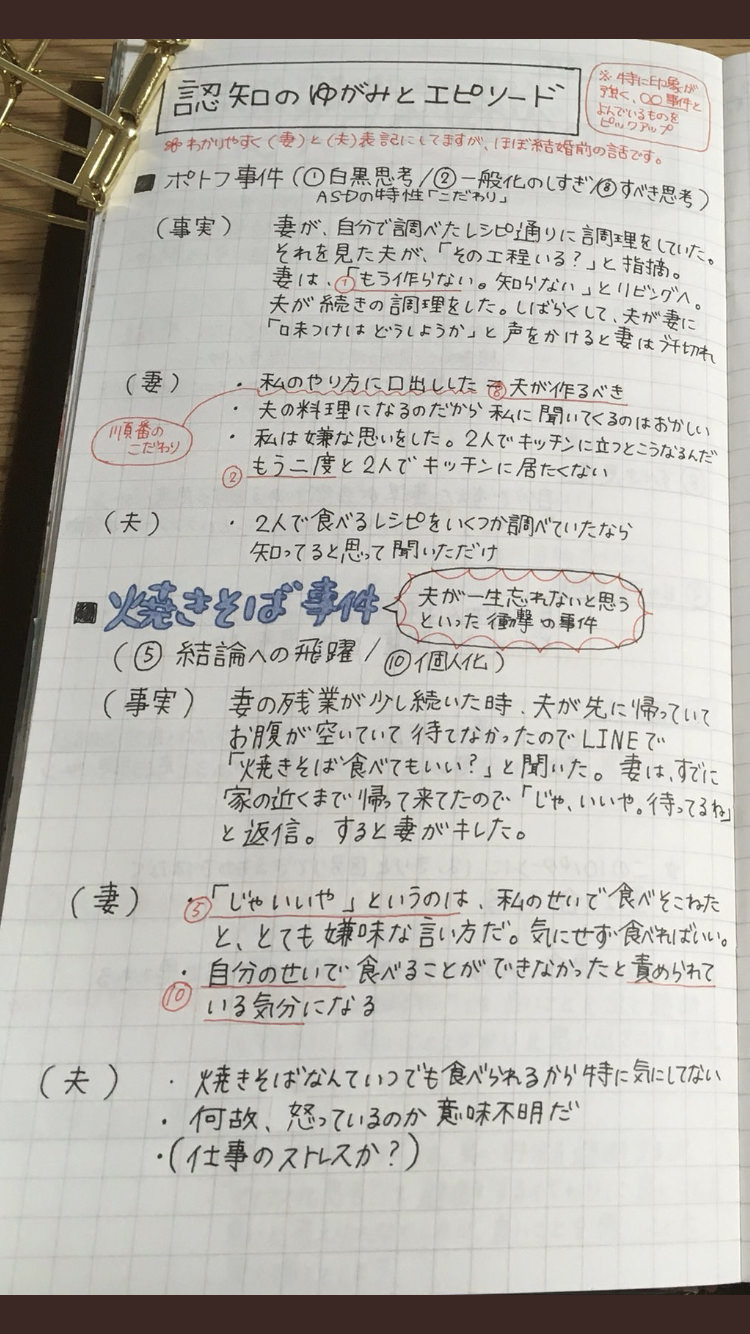 認知のゆがみとエピソード
※特に印象が
強く、〇〇事件と
よんでいるものを
ピックアップ
※わかりやすく(妻)と(夫)表記にしてますが、ほぼ結婚前の話です。
■ ポトフ事件(①白黒思考/②一般化のしすぎ/⑧すべき思考)
ASDの特性「こだわり」
(事実) 妻が、自分で調べたレシピ通りに調理をしていた。
それを見た夫が、「その工程いる?」と指摘。
妻は、①「もう作らない。知らない」とリビングへ。
夫が続きの調理をした。しばらくして、夫が妻に
「味つけはどうしようか」と声をかけると妻はブチ切れ
(妻) ・私のやり方に口出しした ⑧夫が作るべき
順番の
こだわり
・夫の料理になるのだから私に聞いてくるのはおかしい
・私は嫌な思いをした。2人でキッチンに立つとこうなるんだ
②もう二度と2人でキッチンに居たくない
(夫) ・2人で食べるレシピをいくつか調べていたなら
知ってると思って聞いただけ
■ 焼きそば事件
夫が一生忘れないと思う
といった衝撃の事件
(⑤結論への飛躍/⑩個人化)
(事実) 妻の残業が少し続いた時、夫が先に帰っていて
お腹が空いていて待てなかったのでLINEで
「焼きそば食べてもいい?」と聞いた。妻は、すでに
家の近くまで帰って来てたので「じゃ、いいや。待ってるね」
と返信。すると妻がキレた。
(妻) ・⑤「じゃいいや」というのは、私のせいで食べそこねた
と、とても嫌味な言い方だ。気にせず食べればいい。
・⑩自分のせいで食べることができなかったと責められて
いる気分になる
(夫) ・焼きそばなんていつでも食べられるから特に気にしてない
・何故、怒っているのか意味不明だ
・(仕事のストレスか?)